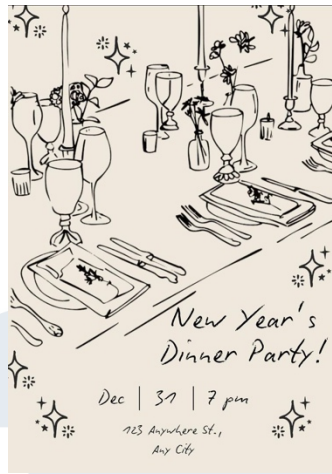 New Year's
Dinner Party!
Dec | 31 | 7 pm
123 Anywhere St.,
Any City